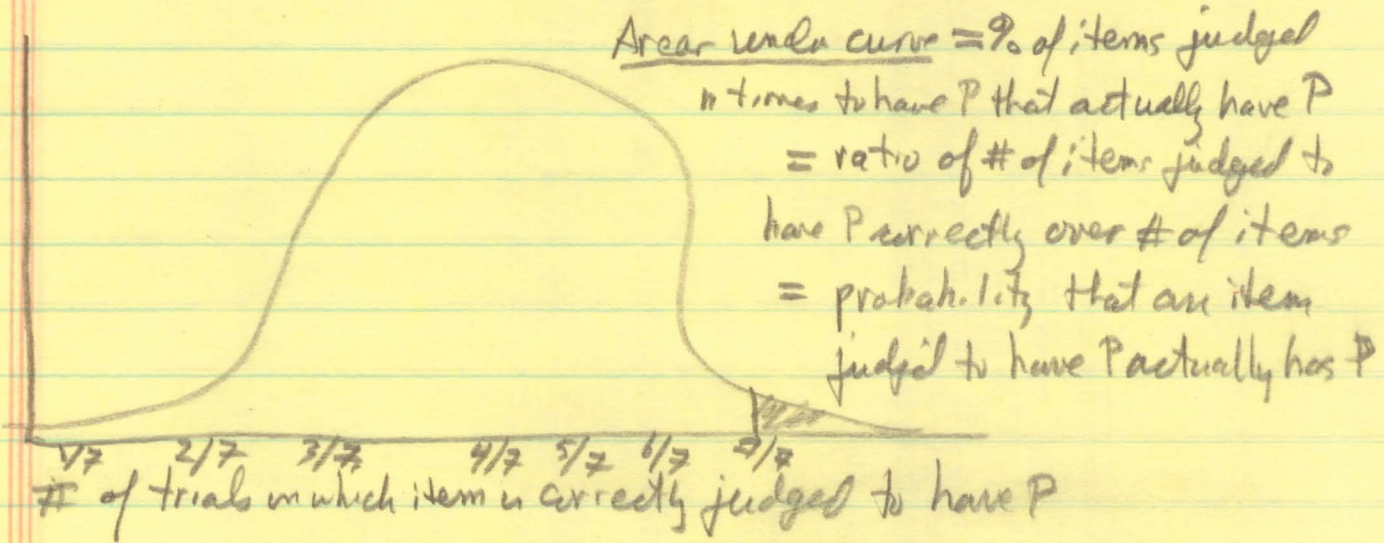 Area under curve = % of items judged
n times to have P that actually have P
= ratio of # of items judged to
have P correctly over # of items
= probability that an item
judg'd to have P actually has P
1/7 2/7 3/7 4/7 5/7 6/7 7/7
# of trials in which item is correctly judged to have P